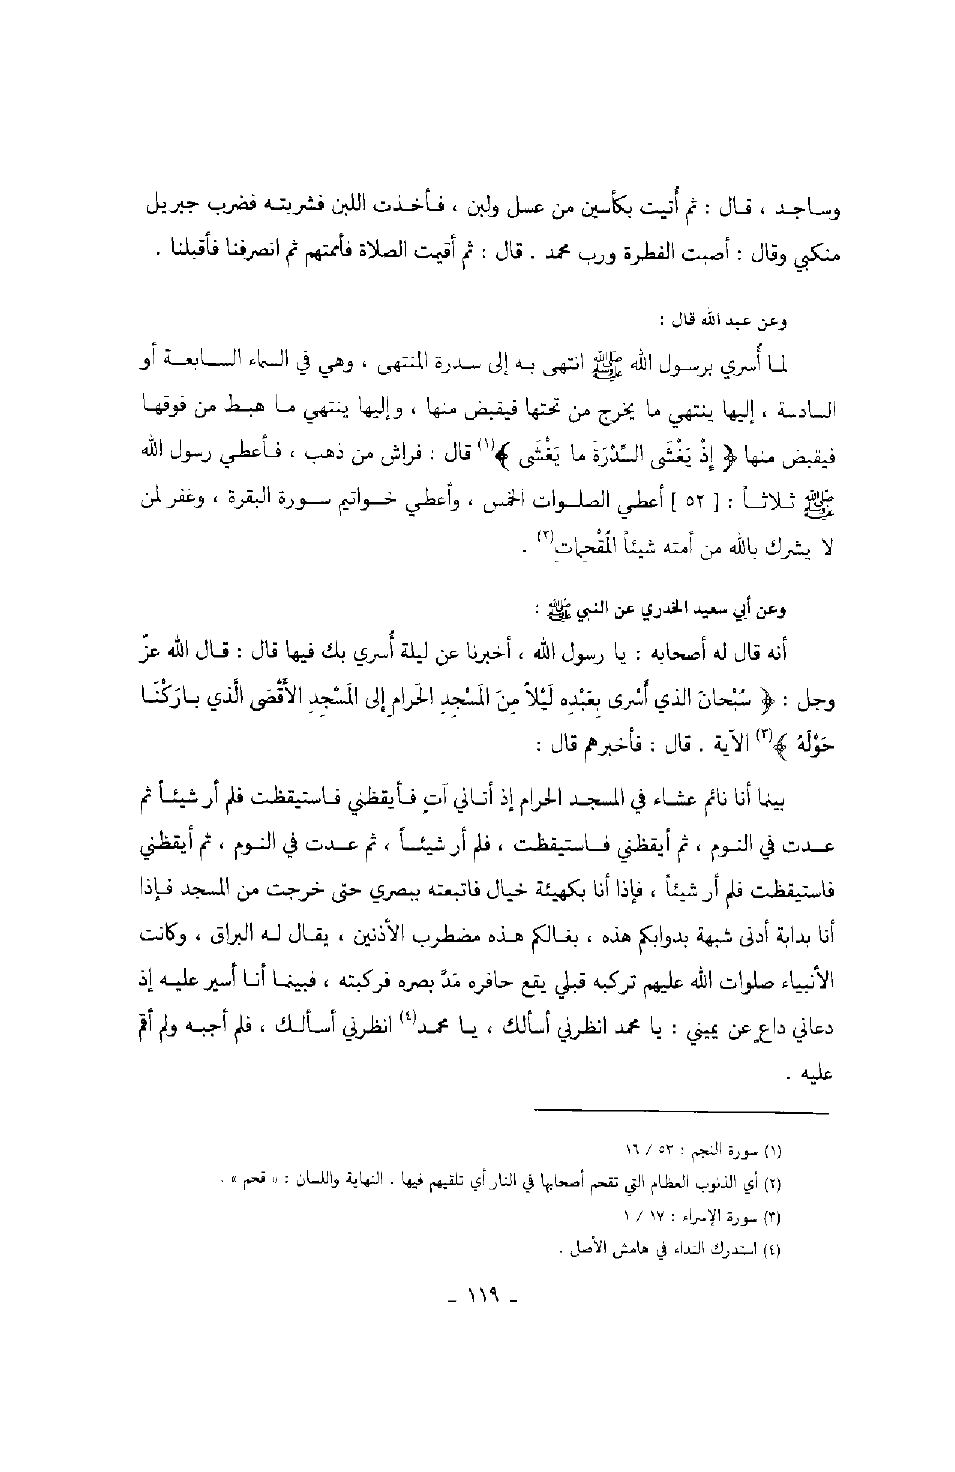 وساجد ، قال : ثم أُتيت بكأسين من عسل ولبن ، فأخذت اللبن فشربته فضرب جبريل
منكبي وقال : أصبت الفطرة ورب محمد . قال : ثم أقيمت الصلاة فأممتهم ثم انصرفنا فأقبلنا .
وعن عبد الله قال :
لما أُسري برسول الله ﷺ انتهى به إلى سدرة المنتهى ، وهي في السماء السابعة أو
السادسة ، إليها ينتهي ما يخرج من تحتها فيقبض منها ، وإليها ينتهي ما هبط من فوقها
فيقبض منها ﴿ إِذْ يَغْشَى السِّدْرَةَ ما يَغْشَى ﴾(١) قال : فراش من ذهب ، فأعطي رسول الله
ﷺ ثلاثاً : [ ٥٢ ] أعطي الصلوات الخمس ، وأعطي خواتيم سورة البقرة ، وغفر لمن
لا يشرك بالله من أمته شيئاً المُقْحِمات(٢) .
وعن أبي سعيد الخدري عن النبي ﷺ :
أنه قال له أصحابه : يا رسول الله ، أخبرنا عن ليلة أُسري بك فيها قال : قال الله عزّ
وجل : ﴿ سُبْحانَ الذي أَسْرى بِعَبْدِه لَيْلاً مِنَ المَسْجِدِ الحَرامِ إلى المَسْجِدِ الأَقْصَى الَّذي بارَكْنَا
حَوْلَهُ ﴾(٣) الآية . قال : فأخبرهم قال :
بينما أنا نائم عشاء في المسجد الحرام إذ أتاني آتٍ فأيقظني فاستيقظت فلم أر شيئاً ثم
عدت في النوم ، ثم أيقظني فاستيقظت ، فلم أر شيئاً ، ثم عدت في النوم ، ثم أيقظني
فاستيقظت فلم أر شيئاً ، فإذا أنا بكهيئة خيال فاتبعته ببصري حتى خرجت من المسجد فإذا
أنا بدابة أدنى شبهة بدوابكم هذه ، بغالكم هذه مضطرب الأذنين ، يقال له البراق ، وكانت
الأنبياء صلوات الله عليهم تركبه قبلي يقع حافره مَدَّ بصره فركبته ، فبينما أنا أسير عليه إذ
دعاني داعٍ عن يميني : يا محمد انظرني أسألك ، يا محمد(٤) انظرني أسألك ، فلم أجبه ولم أقم
عليه .
(١) سورة النجم : ٥٣ / ١٦
(٢) أي الذنوب العظام التي تقحم أصحابها في النار أي تلقيهم فيها . النهاية واللسان : « قحم » .
(٣) سورة الإسراء : ١٧ / ١
(٤) استدرك النداء في هامش الأصل .
ـ ١١٩ ـ